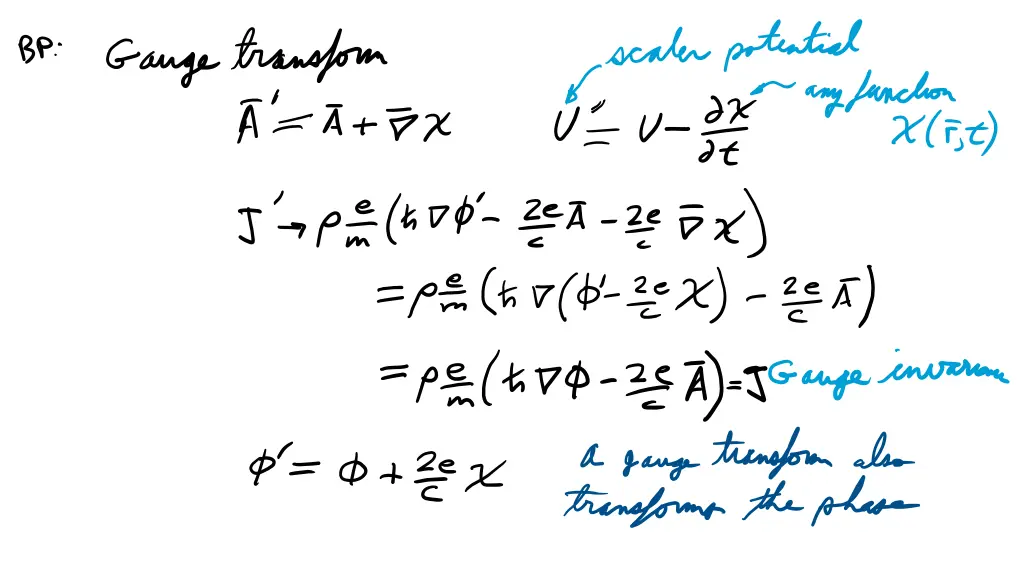 BP: Gauge transform
scaler potential
Ā′ = Ā + ∇̄χ
U′ = U − ∂χ/∂t
any function
χ(r̄,t)
J′ → ρ e/m (ħ∇φ′ − 2e/c Ā − 2e/c ∇̄χ)
= ρ e/m (ħ∇(φ′ − 2e/c χ) − 2e/c Ā)
= ρ e/m (ħ∇φ − 2e/c Ā) = J Gauge invarian
φ′ = φ + 2e/c χ
a gauge transform also
transforms the phase